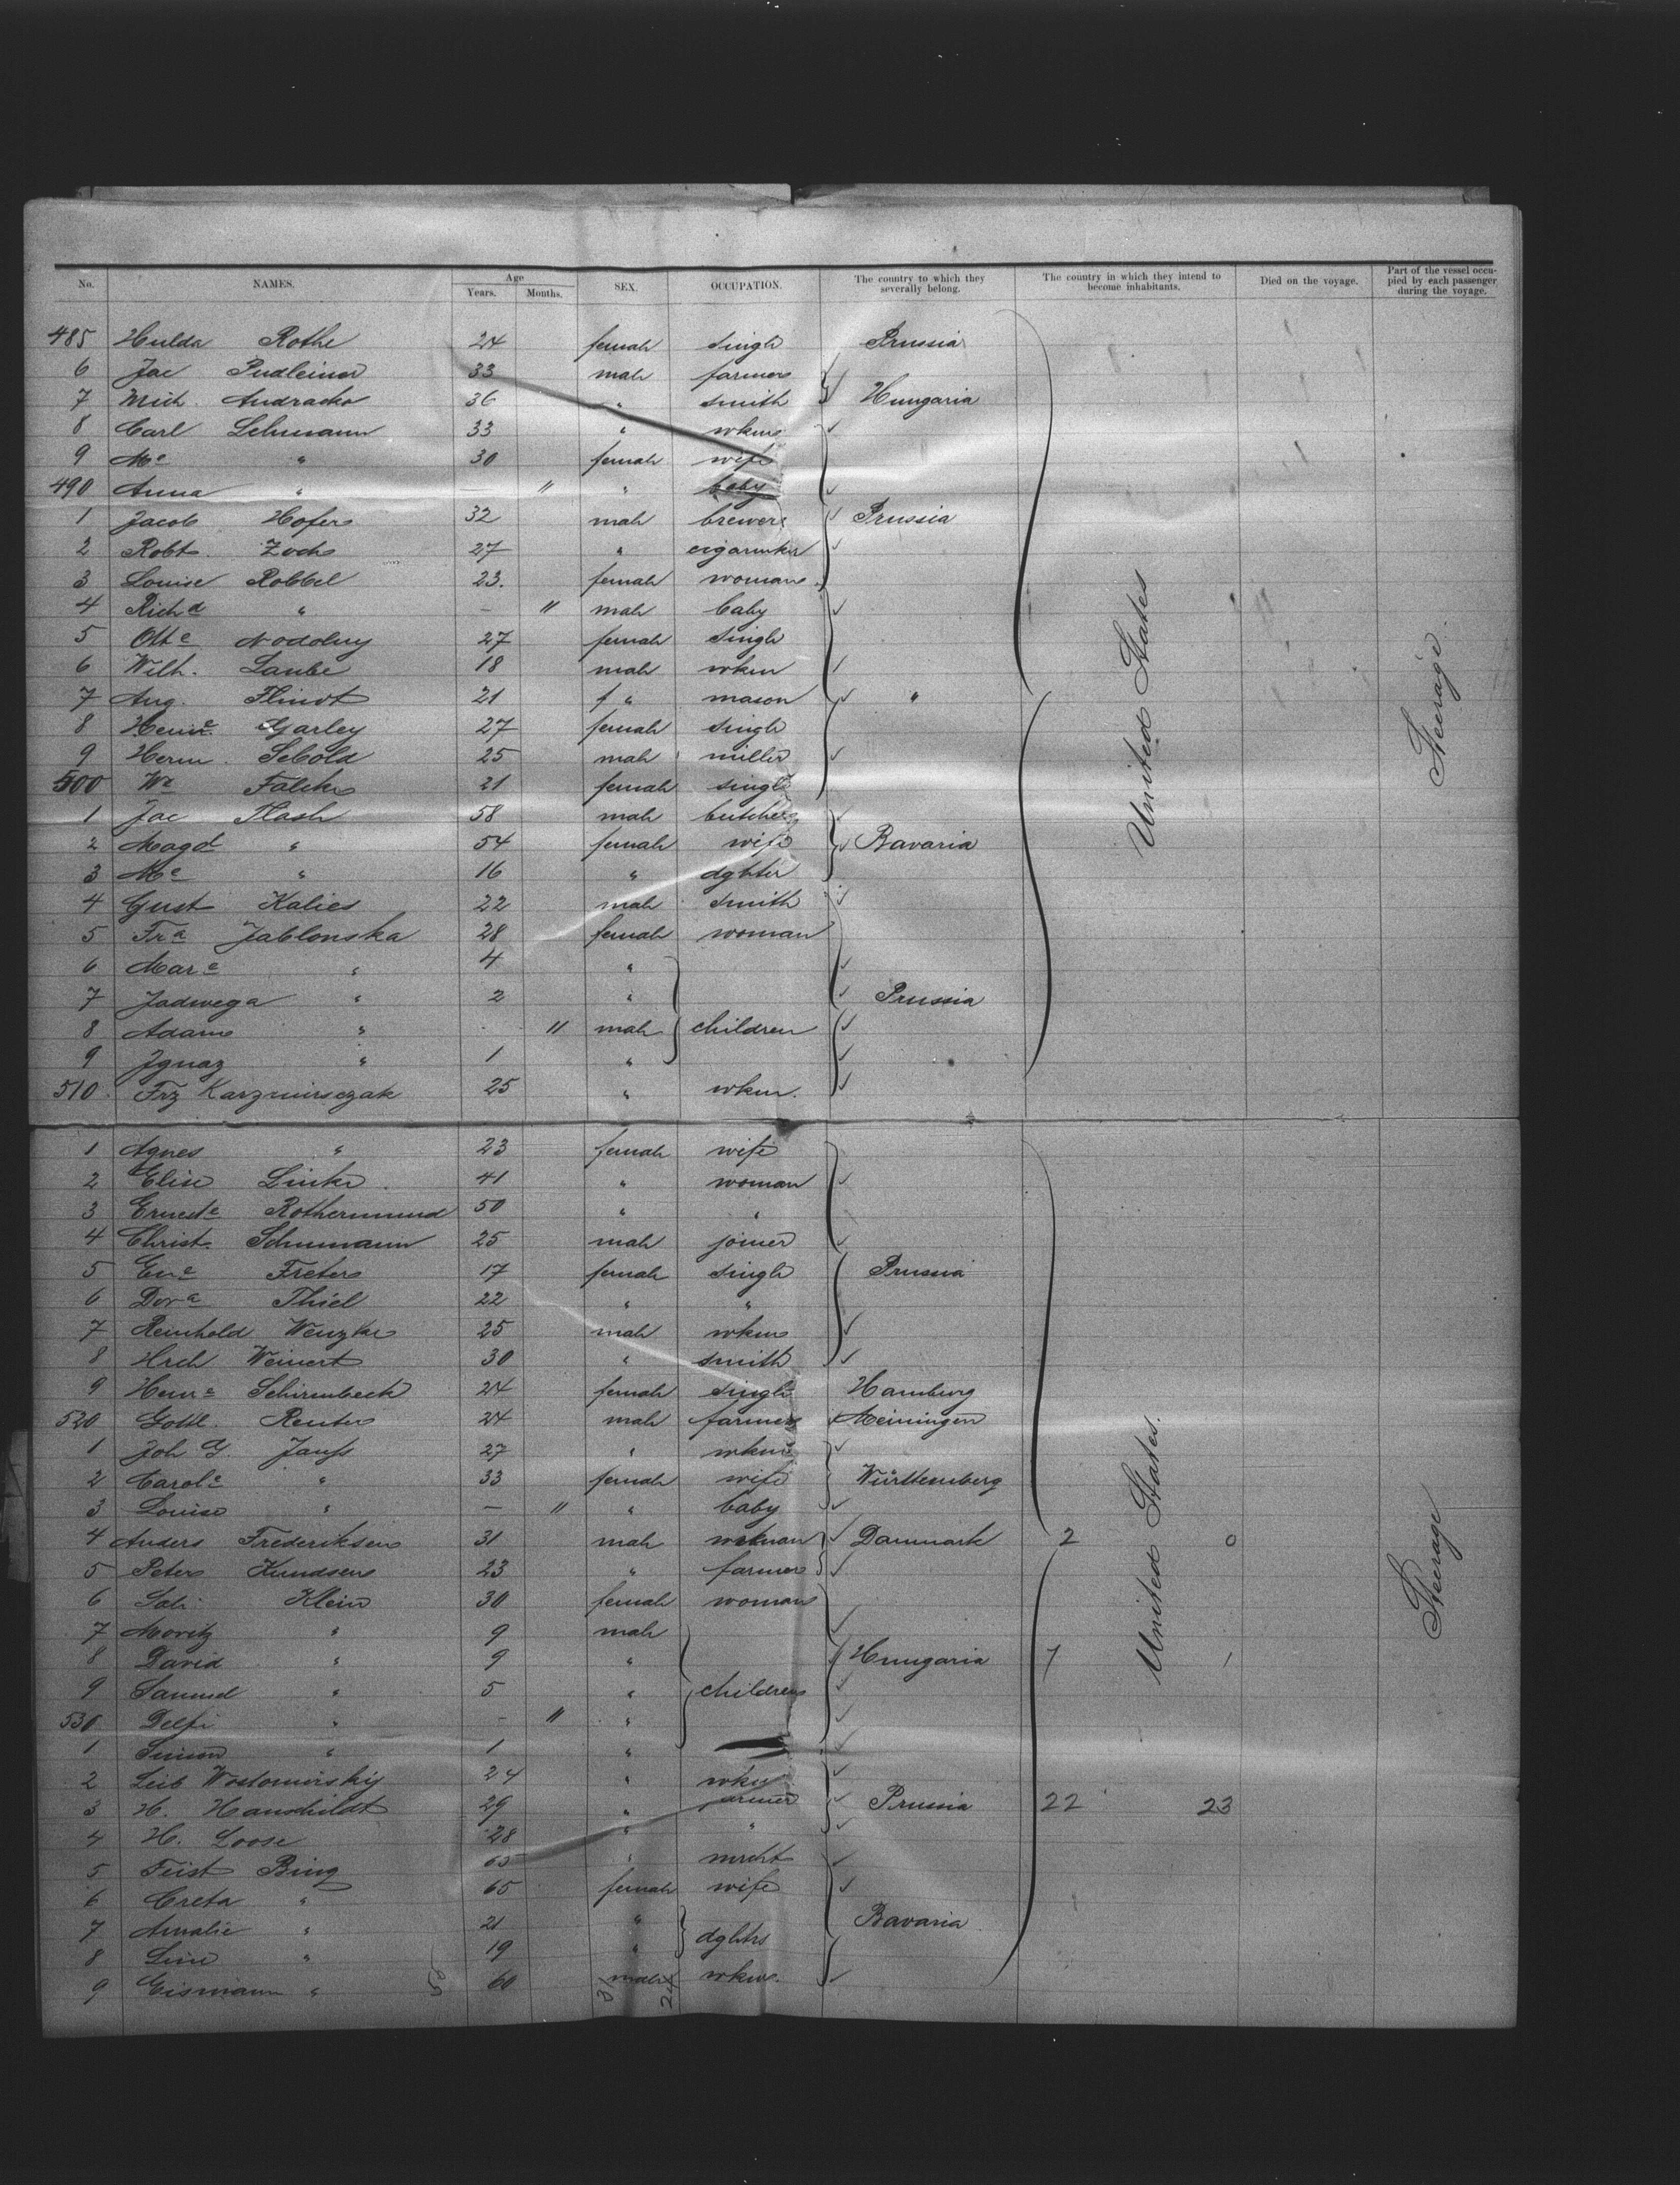 No. NAMES. Age Years. Months. SEX. OCCUPATION. The country to which they severally belong. The country in which they intend to become inhabitants. Died on the voyage. Part of the vessel occupied by each passenger during the voyage.
485 Hulda Rothe 24 female single Prussia
6 Jac 33 male farmer
7 Mich. Andracko 36 " smith Hungaria
8 Carl Lehmann 33 " wkm
9 Me " 30 female wife
490 Anna " — 11 " baby
1 Jacob Hofer 32 male brewer Prussia
2 Robt. Zoch 27 " cigarmker
3 Louise Robbel 23. female woman
4 Richd " — 11 male baby
5 Otte Nodolny 27 female single
6 Wilh. Laube 18 male wkm
7 Aug. 21 " mason "
8 Henre Garley 27 female single
9 Herm. Sebold 25 male miller
500 We Falcke 21 female single
1 Jac Flash 58 male butcher
2 Magd " 54 female wife Bavaria
3 Me " 16 " dghter
4 Gust Kalies 22 male smith
5 Fra Jablonska 28 female woman
6 Mare " 4 "
7 Jadwega " 2 " Prussia
8 Adam " 11 male children
9 Ignaz " 1 "
510 Frz Karzmirsczak 25 " wkm.
United States
Steerage
1 Agnes " 23 female wife
2 Elise Linke 41 " woman
3 Erneste Rothermund 50 " "
4 Christ. Schumann 25 male joiner
5 Freters 17 female single Prussia
6 Dora Thiel 22 " "
7 Reinhold Wenzke 25 male wkm
8 Hrch Weinert 30 " smith
9 Henre Schirmbeck 24 female single Hamburg
520 Gottl. Reuter 24 male farmer Meiningen
1 Joh G. Jauss 27 " wkm
2 Carole " 33 female wife Württemberg
3 Louise " — 11 " baby
4 Anders Frederiksen 31 male wrkman Danmark 2 0
5 Peter Knudsen 23 " farmer
6 Klein 30 female woman
7 Moritz " 9 male
8 David " 9 " Hungaria 7 1
9 Samuel " 5 " children
530 " — 11 "
1 Simon " 1 "
2 Leib 24 " wkm
3 H. Hanschildt 29 " farmer Prussia 22 23
4 H. Loose 28 " "
5 Feist Bing 65 " mrcht
6 Creta " 65 female wife
7 Amalie " 21 " Bavaria
8 Line " 19 " dghtrs
9 Eismann " 60 male wkm.
United States.
Steerage